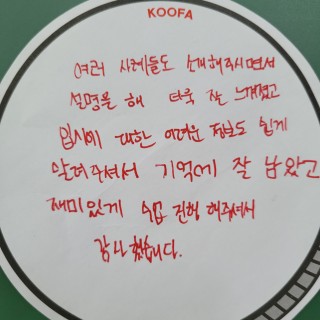 KOOFA
여러 사례들도 소개해주시면서
설명을 해 더욱 잘 느껴졌고
입시에 대한 어려운 정보도 쉽게
알려주셔서 기억에 잘 남았고
재미있게 수업 진행 해주셔서
감사했습니다.